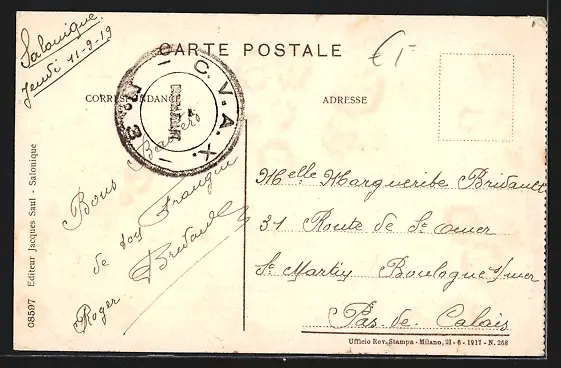 Salonique
Jeudi 11-9-19
€1-
CARTE POSTALE
C.V.A.X. 3
CORRESPONDANCE
ADRESSE
Bons Baisers
de ton Frangin
Bridault
Roger
Melle Marguerite Bridault
31 Route de St Omer
St Martin Boulogne s/mer
Pas-de-Calais
08597 Editeur Jacques Saul - Salonique
Ufficio Rev. Stampa - Milano, 21 - 6 - 1917 - N. 268